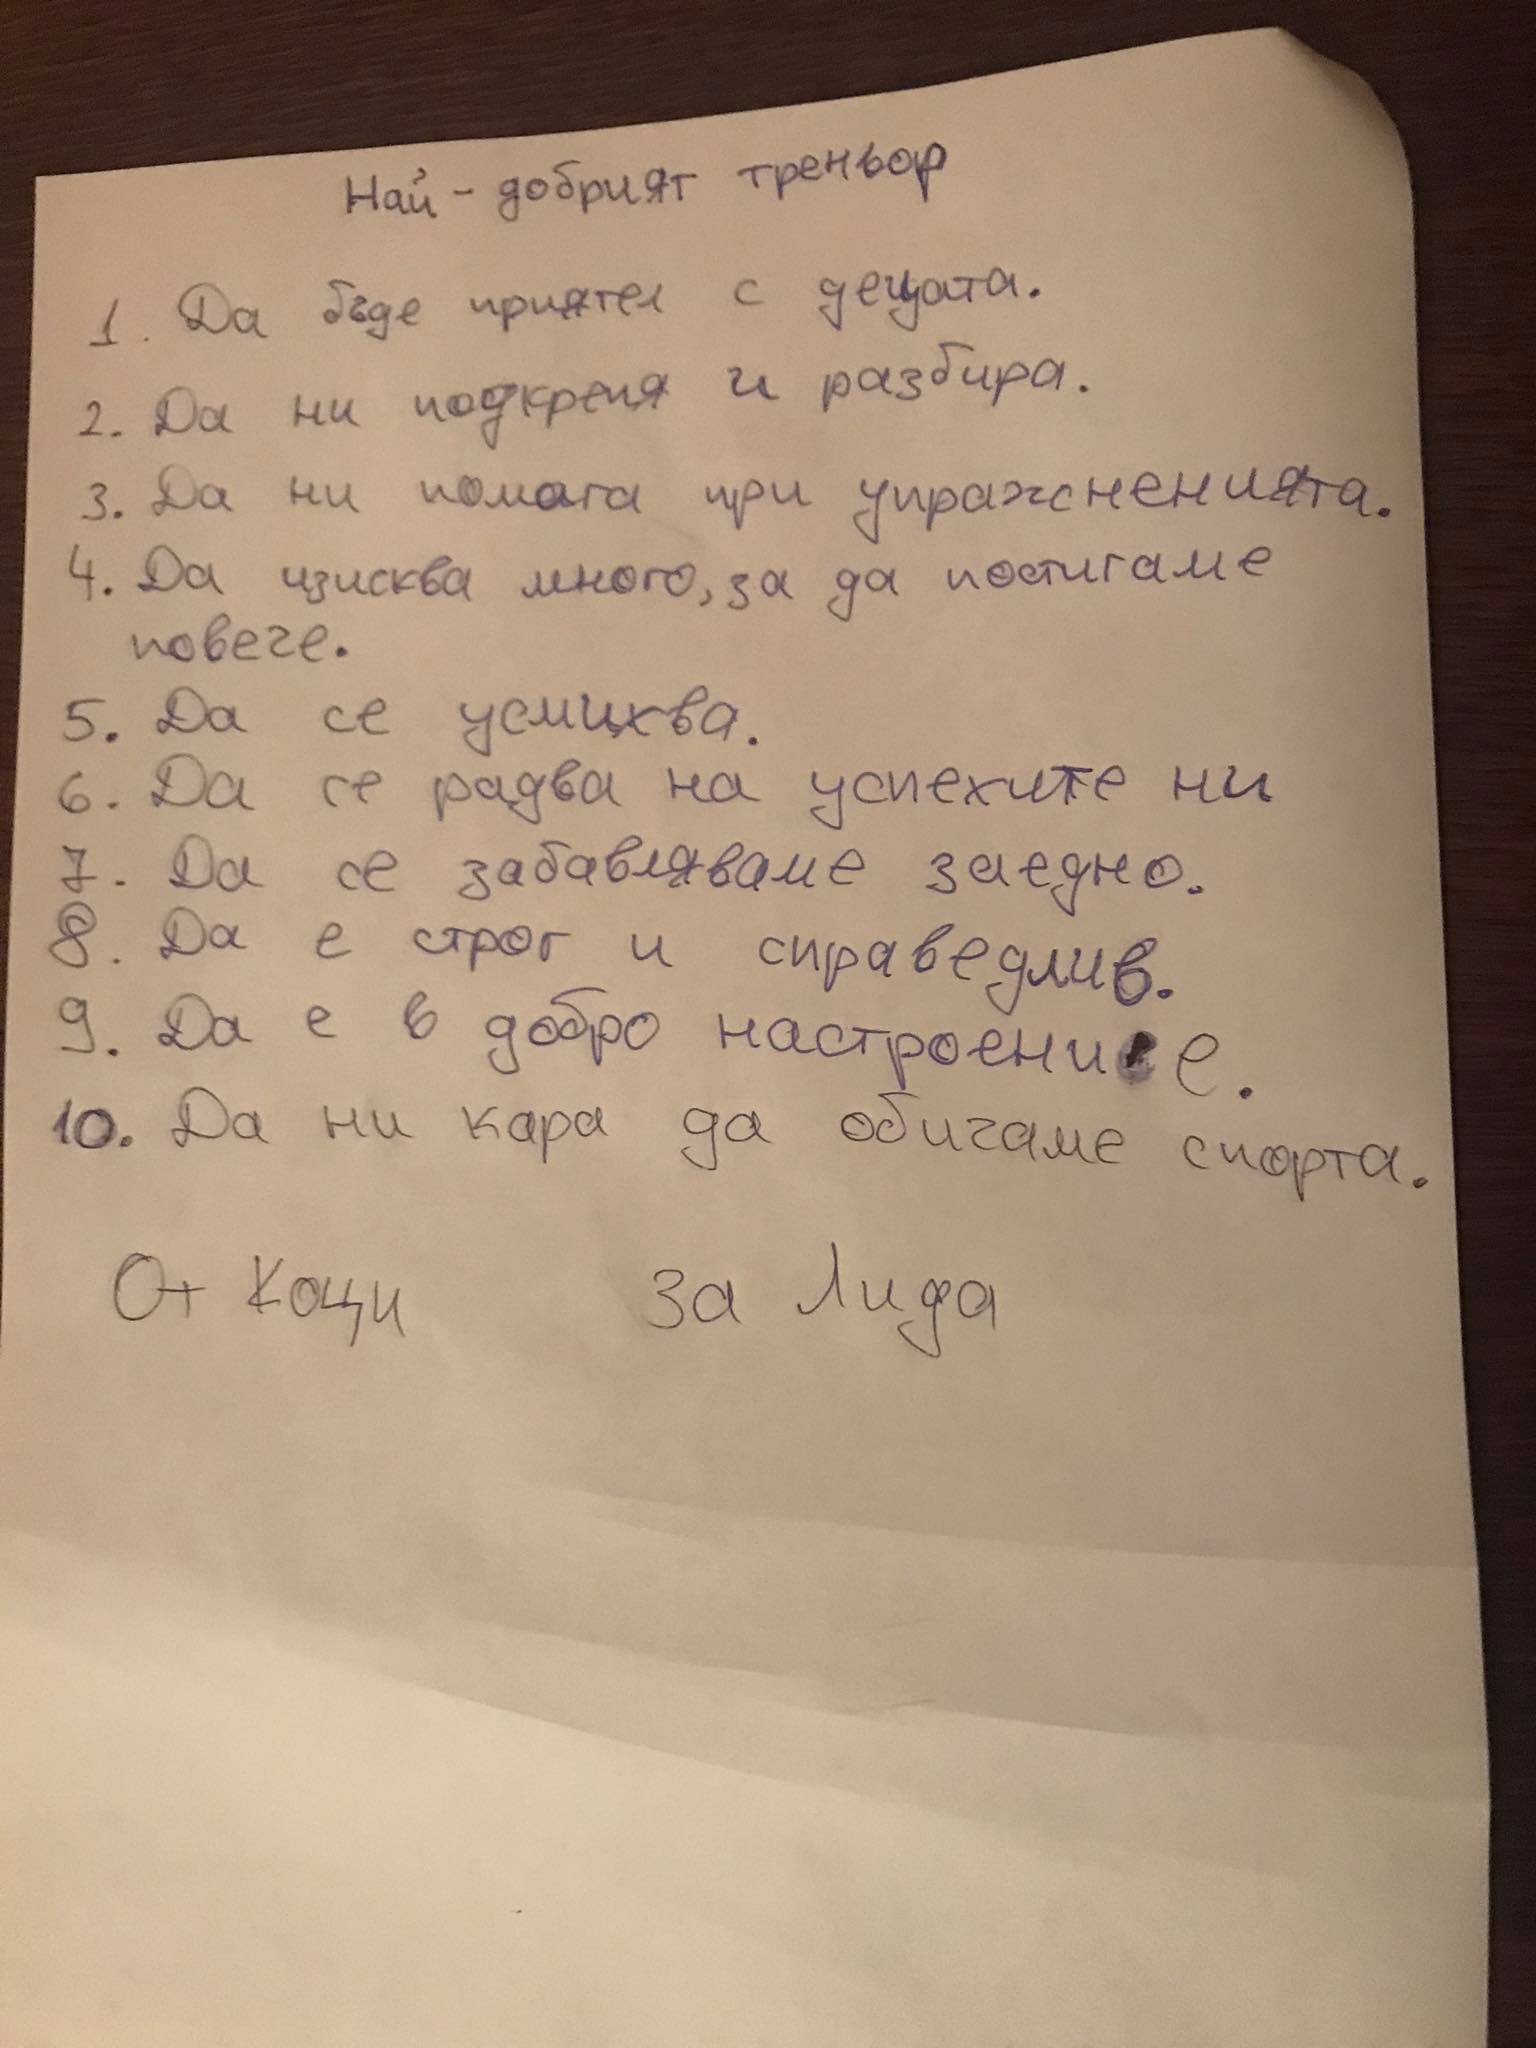 Най-добрият треньор
1. Да бъде приятел с децата.
2. Да ни подкрепя и разбира.
3. Да ни помага при упражненията.
4. Да изисква много, за да постигаме
повече.
5. Да се усмихва.
6. Да се радва на успехите ни
7. Да се забавляваме заедно.
8. Да е строг и справедлив.
9. Да е в добро настроение.
10. Да ни кара да обичаме спорта.
От Коци за Лида